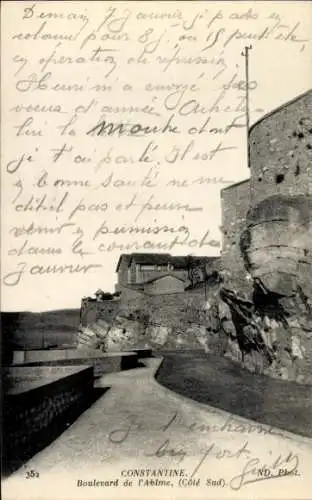 Demain 7 Janvier je pars en
colonne pour 8j. ou 15 peut être,
en opération de répression.
Henri m'a envoyé ses
voeux d'année. Achète et
lis la monte dont
je t'ai parlé. Il est
en bonne santé ne me
dit-il pas et pense
venir en permission
dans le courant de
Janvier
je t'embrasse
bien fort
352
CONSTANTINE.
Boulevard de l'Abîme, (Côté Sud).
ND. Phot.